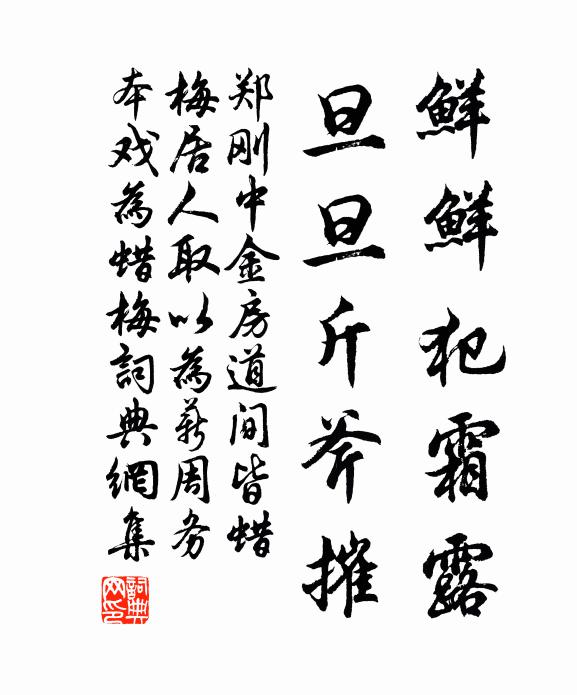 鮮鮮犯霜露
旦旦斤斧摧
郑刚中金房道间皆蜡
梅居人取以為薪周务
本戏為蜡梅詞典網集
詞典
网印